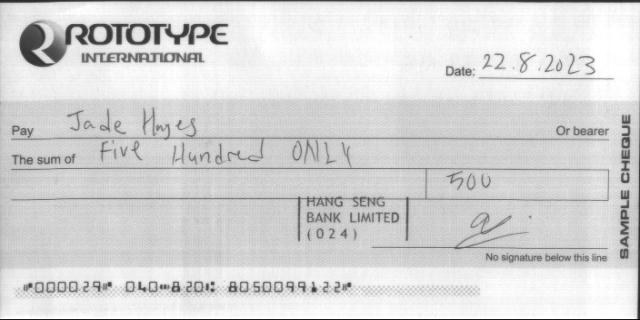 ROTOTYPE
INTERNATIONAL
Date: 22.8.2023
Pay Jade Hayes Or bearer
The sum of Five Hundred ONLY
500
HANG SENG
BANK LIMITED
(024)
No signature below this line
SAMPLE CHEQUE
⑈000029⑈ 040⑉820⑆ 805009912 2⑈